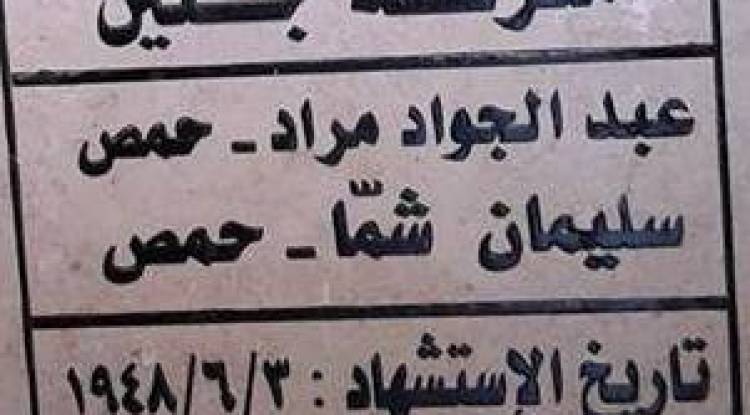 جنين
عبد الجواد مراد - حمص
سليمان شمّا - حمص
تاريخ الإستشهاد : ١٩٤٨/٦/٣